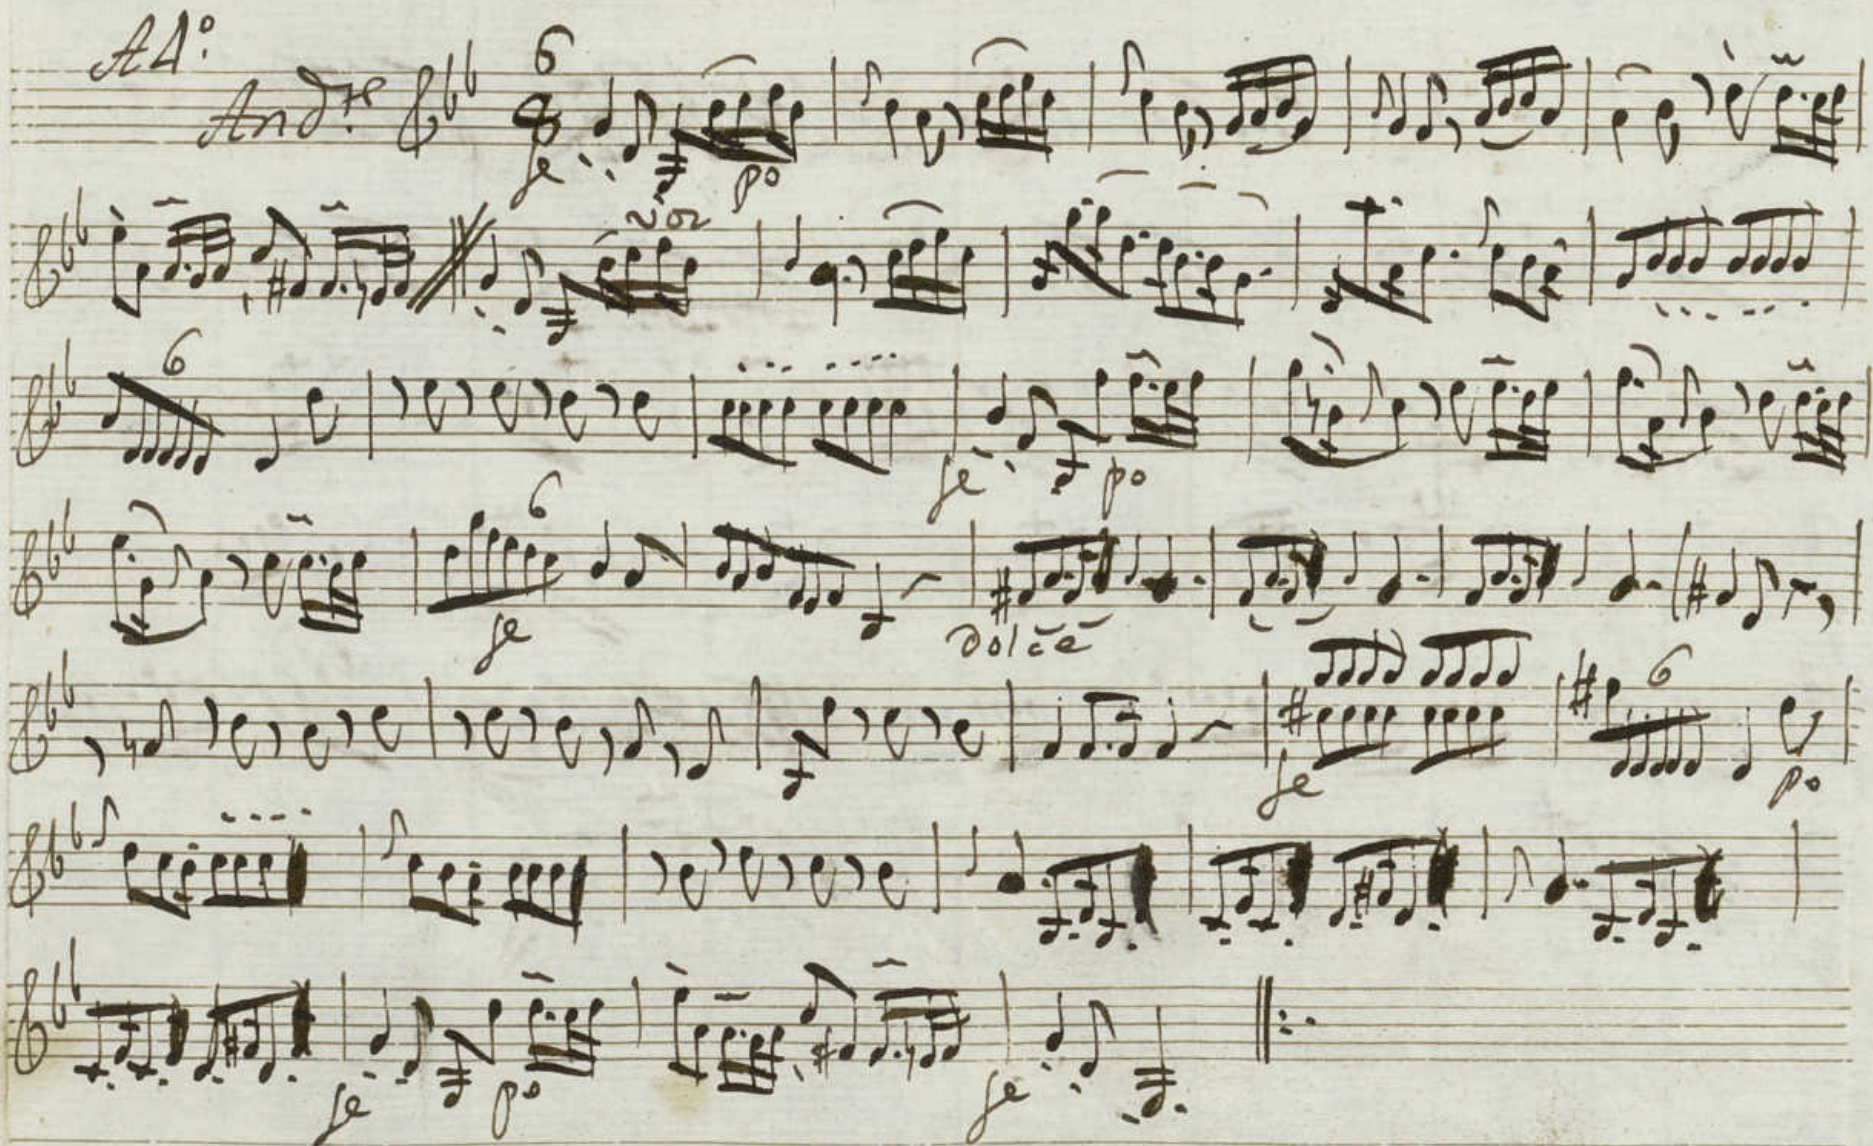 A 4º
And.te
6
8
fe po
voz
6
fe po
6
fe dolce
6
fe po
fe po fe